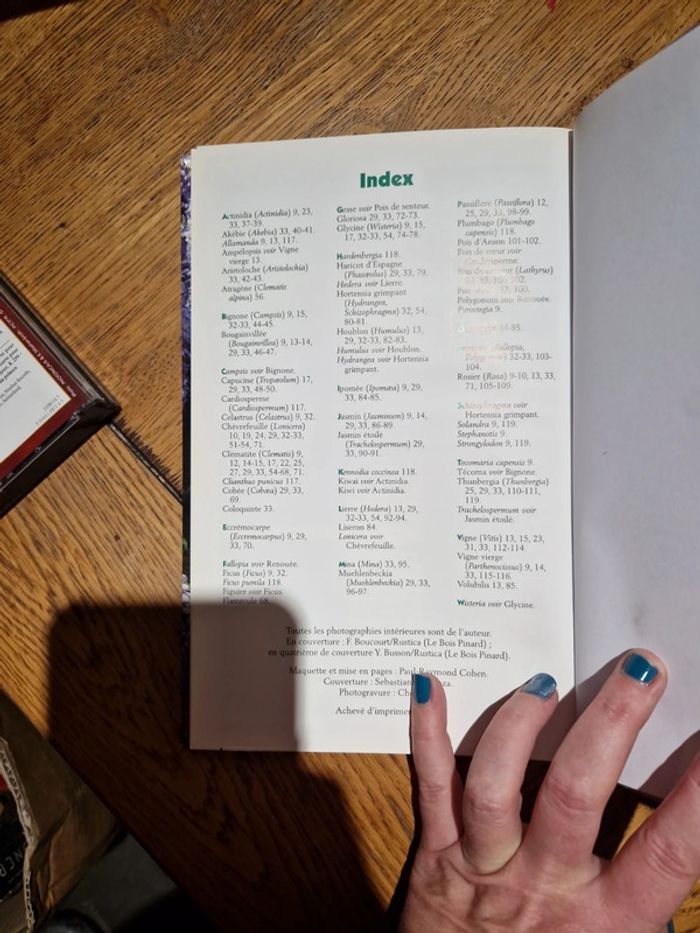 Index
Actinidia (Actinidia) 9, 23,
33, 37-39.
Akébie (Akebia) 33, 40-41.
Allamanda 9, 13, 117.
Ampélopsis voir Vigne
vierge 13.
Aristoloche (Aristolochia)
33, 42-43.
Atragène (Clematis
alpina) 56.
Bignone (Campsis) 9, 15,
32-33, 44-45.
Bougainvillée
(Bougainvillea) 9, 13-14,
29, 33, 46-47.
Campsis voir Bignone.
Capucine (Tropæolum) 17,
29, 33, 48-50.
Cardiosperme
(Cardiospermum) 117.
Celastrus (Celastrus) 9, 32.
Chèvrefeuille (Lonicera)
10, 19, 24, 29, 32-33,
51-54, 71.
Clématite (Clematis) 9,
12, 14-15, 17, 22, 25,
27, 29, 33, 54-68, 71.
Clianthus punicus 117.
Cobée (Cobæa) 29, 33,
69.
Coloquinte 33.
Eccrémocarpe
(Eccremocarpus) 9, 29,
33, 70.
Fallopia voir Renouée.
Ficus (Ficus) 9, 32.
Ficus pumila 118.
Figuier voir Ficus.
Flammule 68.
Gesse voir Pois de senteur.
Gloriosa 29, 33, 72-73.
Glycine (Wisteria) 9, 15,
17, 32-33, 54, 74-78.
Hardenbergia 118.
Haricot d'Espagne
(Phaseolus) 29, 33, 79.
Hedera voir Lierre.
Hortensia grimpant
(Hydrangea,
Schizophragma) 32, 54,
80-81.
Houblon (Humulus) 13,
29, 32-33, 82-83.
Humulus voir Houblon.
Hydrangea voir Hortensia
grimpant.
Ipomée (Ipomæa) 9, 29,
33, 84-85.
Jasmin (Jasminum) 9, 14,
29, 33, 86-89.
Jasmin étoilé
(Trachelospermum) 29,
33, 90-91.
Kennedia coccinea 118.
Kiwaï voir Actinidia.
Kiwi voir Actinidia.
Lierre (Hedera) 13, 29,
32-33, 54, 92-94.
Liseron 84.
Lonicera voir
Chèvrefeuille.
Mina (Mina) 33, 95.
Muehlenbeckia
(Muehlenbeckia) 29, 33,
96-97.
Passiflore (Passiflora) 12,
25, 29, 33, 98-99.
Plumbago (Plumbago
capensis) 118.
Pois d'Anson 101-102.
Pois de cœur voir
Cardiosperme.
Pois de senteur (Lathyrus)
33, 102.
Pois 100.
Polygonum voir Renouée.
Pyrostegia 9.
84-85.
(Fallopia,
Polygonum) 32-33, 103-
104.
Rosier (Rosa) 9-10, 13, 33,
71, 105-109.
Schizophragma voir
Hortensia grimpant.
Solandra 9, 119.
Stephanotis 9.
Strongylodon 9, 119.
Tecomaria capensis 9.
Técoma voir Bignone.
Thunbergia (Thunbergia)
25, 29, 33, 110-111,
119.
Trachelospermum voir
Jasmin étoilé.
Vigne (Vitis) 13, 15, 23,
31, 33, 112-114.
Vigne vierge
(Parthenocissus) 9, 14,
33, 115-116.
Volubilis 13, 85.
Wisteria voir Glycine.
Toutes les photographies intérieures sont de l'auteur.
En couverture : F. Boucourt/Rustica (Le Bois Pinard) ;
en quatrième de couverture Y. Busson/Rustica (Le Bois Pinard).
Maquette et mise en pages : Paul-Raymond Cohen.
Couverture :
Photogravure :
Achevé d'imprimer